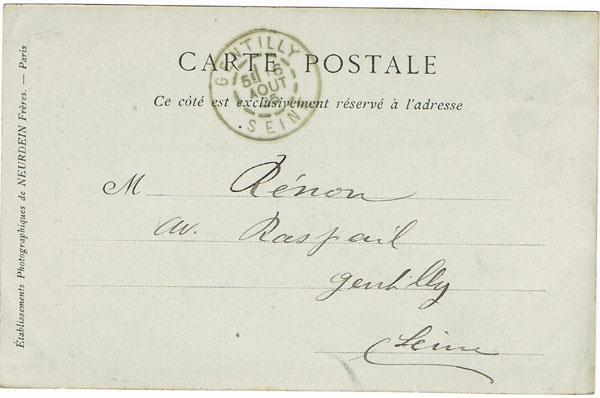 CARTE POSTALE
Ce côté est exclusivement réservé à l'adresse
GENTILLY
16
AOUT
SEINE
M Rénon
av. Raspail
gentilly
Seine
Établissements Photographiques de NEURDEIN Frères. — Paris